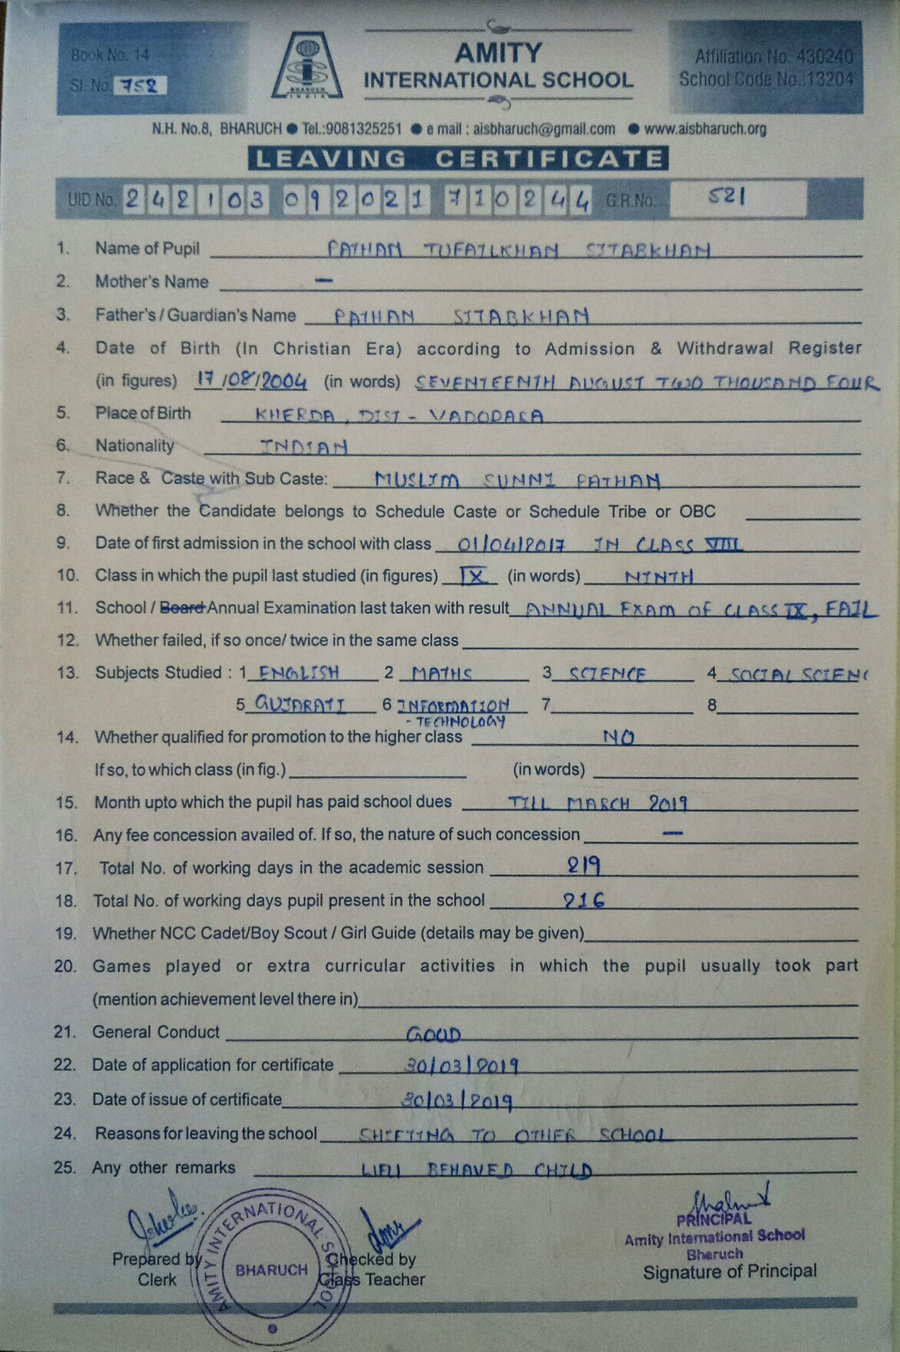 Book No. 14
Sl. No. 752
BHARUCH
INDIA
AMITY
INTERNATIONAL SCHOOL
Affiliation No. 430240
School Code No. 13204
N.H. No.8, BHARUCH ● Tel.:9081325251 ● e mail : aisbharuch@gmail.com ● www.aisbharuch.org
LEAVING CERTIFICATE
UID No. 242103 092021 710244 G.R.No. 521
1. Name of Pupil PATHAN TUFAILKHAN SITABKHAN
2. Mother's Name —
3. Father's / Guardian's Name PATHAN SITABKHAN
4. Date of Birth (In Christian Era) according to Admission & Withdrawal Register
(in figures) 17/08/2004 (in words) SEVENTEENTH AUGUST TWO THOUSAND FOUR
5. Place of Birth KHERDA, DIST - VADODARA
6. Nationality INDIAN
7. Race & Caste with Sub Caste: MUSLIM SUNNI PATHAN
8. Whether the Candidate belongs to Schedule Caste or Schedule Tribe or OBC
9. Date of first admission in the school with class 01/04/2017 IN CLASS VIII
10. Class in which the pupil last studied (in figures) IX (in words) NINTH
11. School / Board Annual Examination last taken with result ANNUAL EXAM OF CLASS IX, FAIL
12. Whether failed, if so once/ twice in the same class
13. Subjects Studied : 1 ENGLISH 2 MATHS 3 SCIENCE 4 SOCIAL SCIENC
5 GUJARATI 6 INFORMATION 7 8
- TECHNOLOGY
14. Whether qualified for promotion to the higher class NO
If so, to which class (in fig.) (in words)
15. Month upto which the pupil has paid school dues TILL MARCH 2019
16. Any fee concession availed of. If so, the nature of such concession —
17. Total No. of working days in the academic session 219
18. Total No. of working days pupil present in the school 216
19. Whether NCC Cadet/Boy Scout / Girl Guide (details may be given)
20. Games played or extra curricular activities in which the pupil usually took part
(mention achievement level there in)
21. General Conduct GOOD
22. Date of application for certificate 30/03/2019
23. Date of issue of certificate 30/03/2019
24. Reasons for leaving the school SHIFTING TO OTHER SCHOOL
25. Any other remarks WELL BEHAVED CHILD
PRINCIPAL
Amity International School
Bharuch
Prepared by
Clerk
AMITY INTERNATIONAL SCHOOL
BHARUCH
Checked by
Class Teacher
Signature of Principal